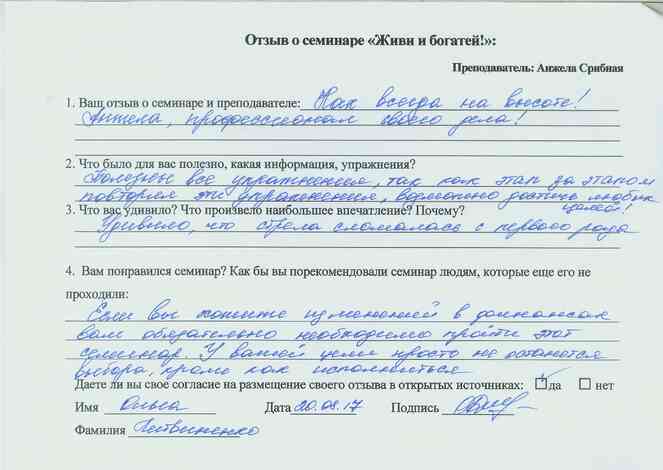 Отзыв о семинаре «Живи и богатей!»:
Преподаватель: Анжела Срибная
1. Ваш отзыв о семинаре и преподавателе: Как всегда на высоте!
Анжела, профессионал своего дела!
2. Что было для вас полезно, какая информация, упражнения?
Полезны все упражнения, так как этап за этапом
повторяя эти упражнения, возможно достичь любых
целей!
3. Что вас удивило? Что произвело наибольшее впечатление? Почему?
Удивило, что стрела сломалась с первого раза
4. Вам понравился семинар? Как бы вы порекомендовали семинар людям, которые еще его не
проходили:
Если вы хотите изменений в финансах
вам обязательно необходимо пройти этот
семинар. У вашей цели просто не останется
выбора, кроме как исполниться
Даете ли вы свое согласие на размещение своего отзыва в открытых источниках: да нет
Имя Ольга Дата 20.08.17 Подпись
Фамилия Литвиненко